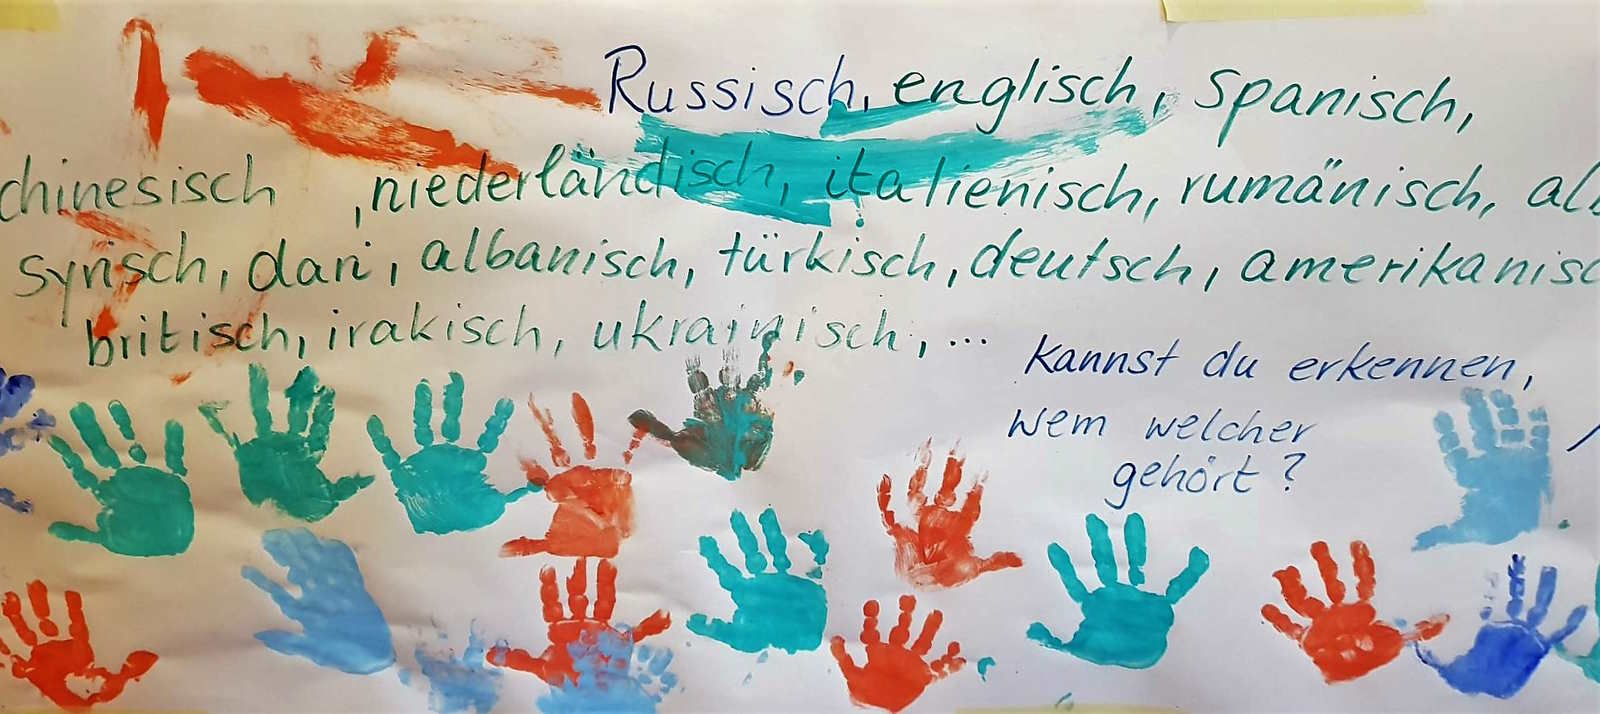 Russisch, englisch, spanisch,
chinesisch , niederländisch, italienisch, rumänisch,
syrisch, dari, albanisch, türkisch, deutsch, amerikanisc
britisch, irakisch, ukrainisch, ...
Kannst du erkennen,
wem welcher
gehört?